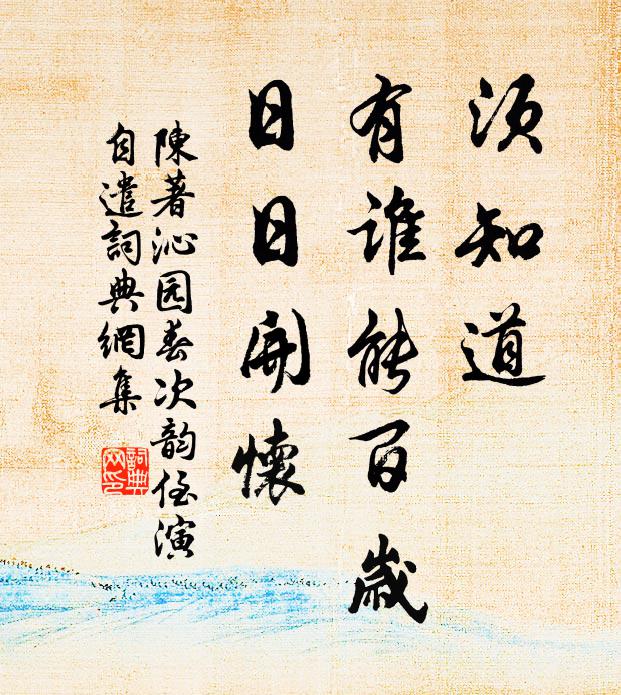 须知道
有谁能百岁
日日开懷
陳著沁园春次韵侄演
自遣詞典網集
詞典
网印